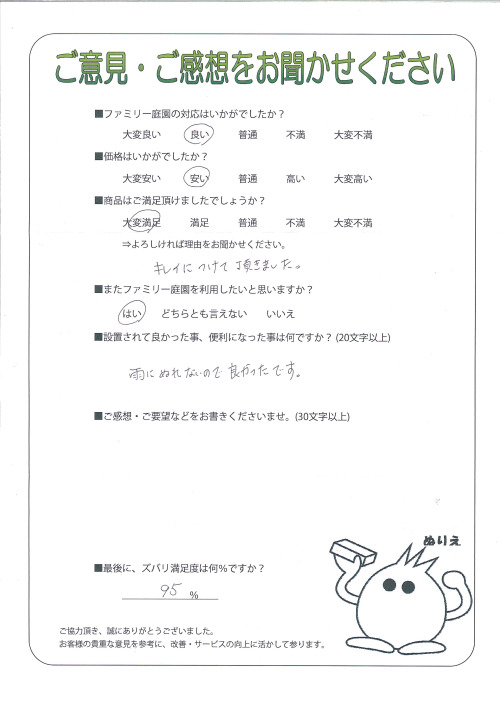 ご意見・ご感想をお聞かせください
■ファミリー庭園の対応はいかがでしたか？
大変良い 良い 普通 不満 大変不満
■価格はいかがでしたか？
大変安い 安い 普通 高い 大変高い
■商品はご満足頂けましたでしょうか？
大変満足 満足 普通 不満 大変不満
⇒よろしければ理由をお聞かせください。
キレイにつけて頂きました。
■またファミリー庭園を利用したいと思いますか？
はい どちらとも言えない いいえ
■設置されて良かった事、便利になった事は何ですか？(20文字以上)
雨にぬれないので良かったです。
■ご感想・ご要望などをお書きくださいませ。(30文字以上)
ぬりえ
■最後に、ズバリ満足度は何％ですか？
95 ％
ご協力頂き、誠にありがとうございました。
お客様の貴重な意見を参考に、改善・サービスの向上に活かして参ります。